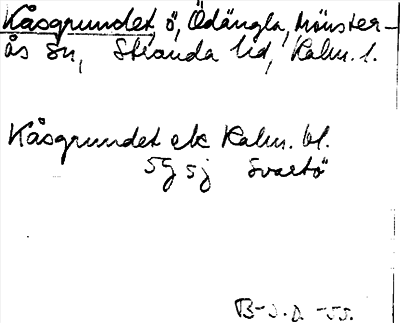 Kåsgrundet, ö, Ödängla, Mönster-
ås sn, Stranda hd, Kalm. l.
Kåsgrundet ek Kalm. bl.
5g 5j Svartö
B-s.d. -55.